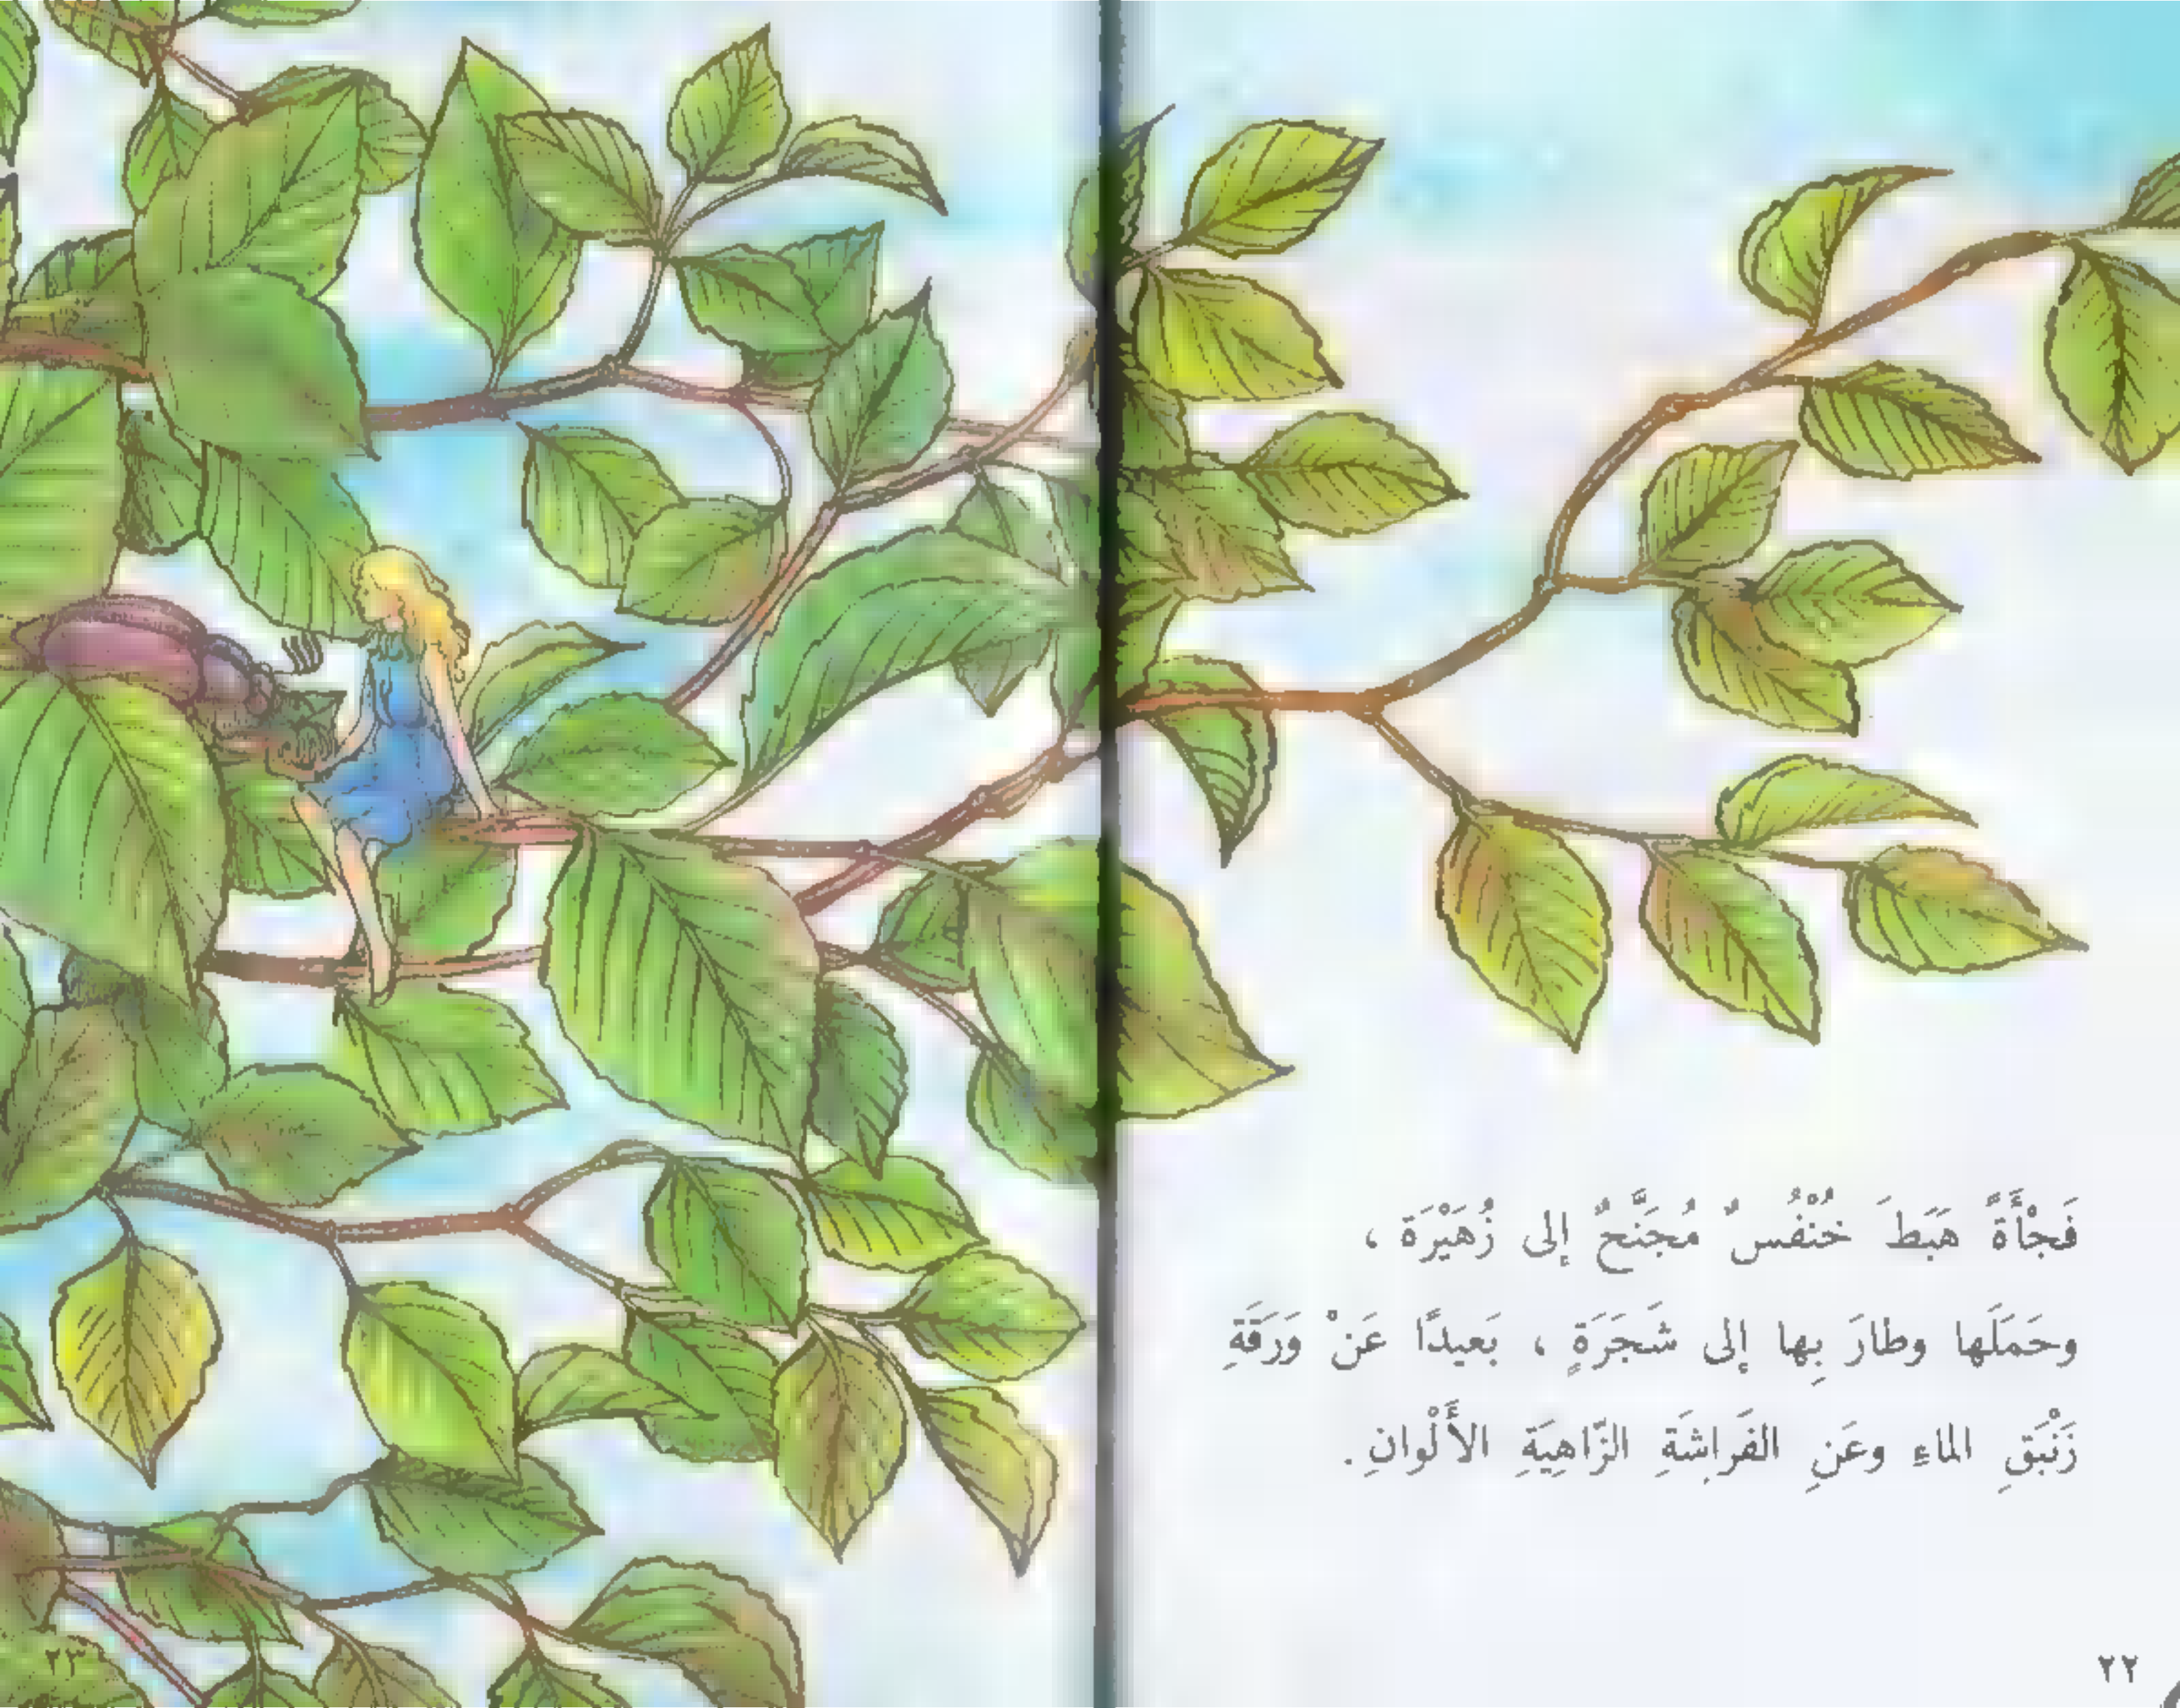 فَجْأَةً هَبَطَ خُنْفُسٌ مُجَنَّحٌ إلى زُهَيْرَة ،
وحَمَلَها وطارَ بِها إلى شَجَرَةٍ ، بَعيدًا عَنْ وَرَقَةِ
زَنْبَقِ الماءِ وعَنِ الفَراشَةِ الزّاهِيَةِ الأَلْوانِ.
٢٢
٢٣